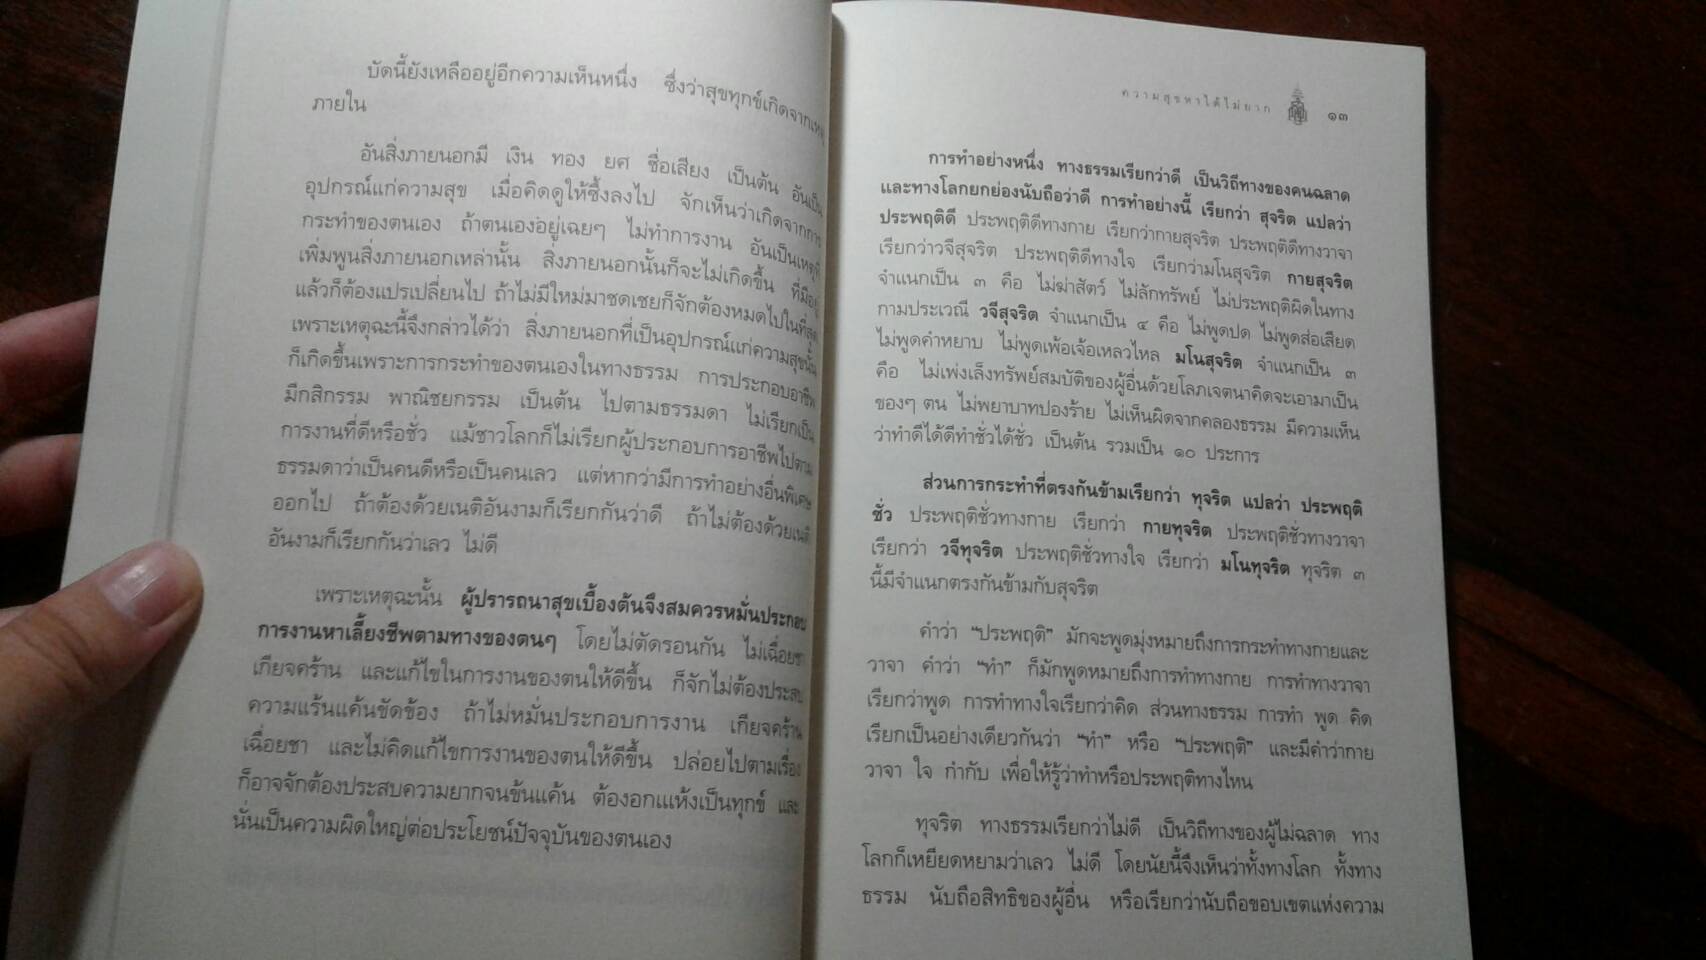 บัดนี้ยังเหลืออยู่อีกความเห็นหนึ่ง ซึ่งว่าสุขทุกข์เกิดจากเหตุ
ภายใน
อันสิ่งภายนอกมี เงิน ทอง ยศ ชื่อเสียง เป็นต้น อันเป็น
อุปกรณ์แก่ความสุข เมื่อคิดดูให้ซึ้งลงไป จักเห็นว่าเกิดจากการ
กระทำของตนเอง ถ้าตนเองอยู่เฉยๆ ไม่ทำการงาน อันเป็นเหตุ
เพิ่มพูนสิ่งภายนอกเหล่านั้น สิ่งภายนอกนั้นก็จะไม่เกิดขึ้น ที่มีอยู่
แล้วก็ต้องแปรเปลี่ยนไป ถ้าไม่มีใหม่มาชดเชยก็จักต้องหมดไปในที่สุด
เพราะเหตุฉะนี้จึงกล่าวได้ว่า สิ่งภายนอกที่เป็นอุปกรณ์แก่ความสุขนั้น
ก็เกิดขึ้นเพราะการกระทำของตนเองในทางธรรม การประกอบอาชีพ
มีกสิกรรม พาณิชยกรรม เป็นต้น ไปตามธรรมดา ไม่เรียกเป็น
การงานที่ดีหรือชั่ว แม้ชาวโลกก็ไม่เรียกผู้ประกอบการอาชีพไปตาม
ธรรมดาว่าเป็นคนดีหรือเป็นคนเลว แต่หากว่ามีการทำอย่างอื่นพิเศษ
ออกไป ถ้าต้องด้วยเนติอันงามก็เรียกกันว่าดี ถ้าไม่ต้องด้วยเนติ
อันงามก็เรียกกันว่าเลว ไม่ดี
เพราะเหตุฉะนั้น ผู้ปรารถนาสุขเบื้องต้นจึงสมควรหมั่นประกอบ
การงานหาเลี้ยงชีพตามทางของตนๆ โดยไม่ตัดรอนกัน ไม่เฉื่อยชา
เกียจคร้าน และแก้ไขในการงานของตนให้ดีขึ้น ก็จักไม่ต้องประสบ
ความแร้นแค้นขัดข้อง ถ้าไม่หมั่นประกอบการงาน เกียจคร้าน
เฉื่อยชา และไม่คิดแก้ไขการงานของตนให้ดีขึ้น ปล่อยไปตามเรื่อง
ก็อาจจักต้องประสบความยากจนข้นแค้น ต้องอกแห้งเป็นทุกข์ และ
นั่นเป็นความผิดใหญ่ต่อประโยชน์ปัจจุบันของตนเอง
ความสุขหาได้ไม่ยาก ๑๓
การทำอย่างหนึ่ง ทางธรรมเรียกว่าดี เป็นวิถีทางของคนฉลาด
และทางโลกยกย่องนับถือว่าดี การทำอย่างนี้ เรียกว่า สุจริต แปลว่า
ประพฤติดี ประพฤติดีทางกาย เรียกว่ากายสุจริต ประพฤติดีทางวาจา
เรียกว่าวจีสุจริต ประพฤติดีทางใจ เรียกว่ามโนสุจริต กายสุจริต
จำแนกเป็น ๓ คือ ไม่ฆ่าสัตว์ ไม่ลักทรัพย์ ไม่ประพฤติผิดในทาง
กามประเวณี วจีสุจริต จำแนกเป็น ๔ คือ ไม่พูดปด ไม่พูดส่อเสียด
ไม่พูดคำหยาบ ไม่พูดเพ้อเจ้อเหลวไหล มโนสุจริต จำแนกเป็น ๓
คือ ไม่เพ่งเล็งทรัพย์สมบัติของผู้อื่นด้วยโลภเจตนาคิดจะเอามาเป็น
ของๆ ตน ไม่พยาบาทปองร้าย ไม่เห็นผิดจากคลองธรรม มีความเห็น
ว่าทำดีได้ดีทำชั่วได้ชั่ว เป็นต้น รวมเป็น ๑๐ ประการ
ส่วนการกระทำที่ตรงกันข้ามเรียกว่า ทุจริต แปลว่า ประพฤติ
ชั่ว ประพฤติชั่วทางกาย เรียกว่า กายทุจริต ประพฤติชั่วทางวาจา
เรียกว่า วจีทุจริต ประพฤติชั่วทางใจ เรียกว่า มโนทุจริต ทุจริต ๓
นี้มีจำแนกตรงกันข้ามกับสุจริต
คำว่า “ประพฤติ” มักจะพูดมุ่งหมายถึงการกระทำทางกายและ
วาจา คำว่า “ทำ” ก็มักพูดหมายถึงการทำทางกาย การทำทางวาจา
เรียกว่าพูด การทำทางใจเรียกว่าคิด ส่วนทางธรรม การทำ พูด คิด
เรียกเป็นอย่างเดียวกันว่า “ทำ” หรือ “ประพฤติ” และมีคำว่ากาย
วาจา ใจ กำกับ เพื่อให้รู้ว่าทำหรือประพฤติทางไหน
ทุจริต ทางธรรมเรียกว่าไม่ดี เป็นวิถีทางของผู้ไม่ฉลาด ทาง
โลกก็เหยียดหยามว่าเลว ไม่ดี โดยนัยนี้จึงเห็นว่าทั้งทางโลก ทั้งทาง
ธรรม นับถือสิทธิของผู้อื่น หรือเรียกว่านับถือขอบเขตแห่งความ